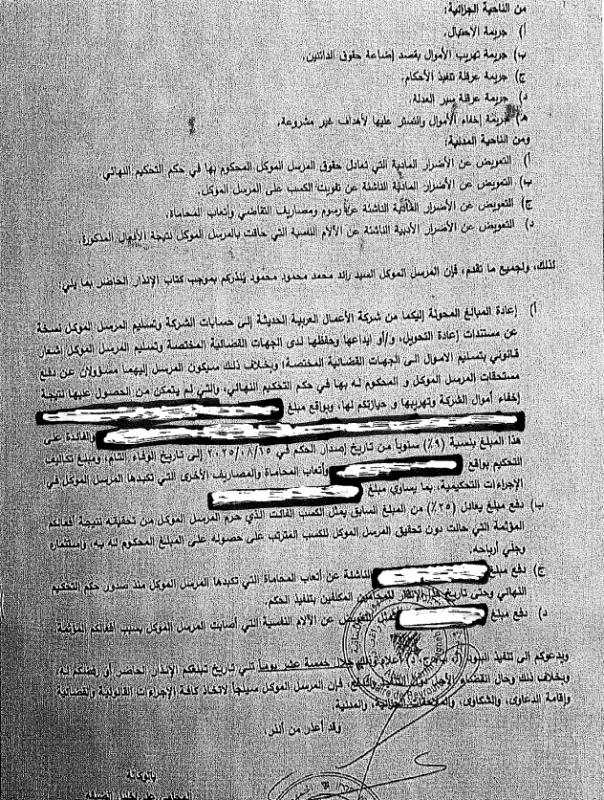 من الناحية الجزائية:
أ) جريمة الاحتيال.
ب) جريمة تهريب الأموال بقصد إضاعة حقوق الدائنين.
ج) جريمة عرقلة تنفيذ الأحكام.
د) جريمة عرقلة سير العدالة.
هـ) جريمة إخفاء الأموال والتستر عليها لأهداف غير مشروعة.
ومن الناحية المدنية:
أ) التعويض عن الأضرار المادية التي تعادل حقوق المرسل الموكل المحكوم بها في حكم التحكيم النهائي
ب) التعويض عن الأضرار المادية الناشئة عن تفويت الكسب على المرسل الموكل.
ج) التعويض عن الأضرار المادية الناشئة عن رسوم ومصاريف التقاضي وأتعاب المحاماة.
د) التعويض عن الأضرار الأدبية الناشئة عن الآلام النفسية التي حاقت بالمرسل الموكل نتيجة الأفعال المذكورة.
كذلك، ولجميع ما تقدم، فإن المرسل الموكل السيد رائد محمد محمود محمود يُنذركم بموجب كتاب الإنذار الحاضر بما يلي:
أ) إعادة المبالغ المحولة إليكما من شركة الأعمال العربية الحديثة إلى حسابات الشركة وتسليم المرسل الموكل نسخة
عن مستندات إعادة التحويل، و/أو إيداعها وحفظها لدى الجهات القضائية المختصة وتسليم المرسل الموكل إشعار
قانوني بتسليم الاموال الى الجهات القضائية المختصة؛ وبخلاف ذلك سيكون المرسل إليهما مسؤولان عن دفع
مستحقات المرسل الموكل و المحكوم له بها في حكم التحكيم النهائي، والتي لم يتمكن من الحصول عليها نتيجة
إخفاء أموال الشركة وتهريبها و حيازتكم لها، وبواقع مبلغ
والفائدة على
هذا المبلغ بنسبة (٩٪) سنوياً من تاريخ إصدار الحكم في ٢٠٢٥/٠٨/١٥ إلى تاريخ الوفاء التام، ومبلغ تكاليف
التحكيم بواقع وأتعاب المحاماة والمصاريف الأخرى التي تكبدها المرسل الموكل في
الإجراءات التحكيمية، بما يساوي مبلغ
ب) دفع مبلغ يعادل (٢٥٪) من المبلغ السابق يمثل الكسب الفائت الذي حرم المرسل الموكل من تحقيقه نتيجة أفعالكم
المؤثمة التي حالت دون تحقيق المرسل الموكل للكسب المترتب على حصوله على المبلغ المحكوم له به، واستثماره
وجني أرباحه.
ج) دفع مبلغ الناشئة عن أتعاب المحاماة التي تكبدها المرسل الموكل منذ صدور حكم التحكيم
النهائي وحتى تاريخ هذا الإنذار للمحامين المكلفين بتنفيذ الحكم.
د) دفع مبلغ التعويض عن الآلام النفسية التي أصابت المرسل الموكل بسبب أفعالكم المؤثمة.
ويدعوكم الى تنفيذ البنود أعلاه وذلك خلال خمسة عشر يوماً تلي تاريخ تبلغكم الإنذار الحاضر أو رفضكم له،
وبخلاف ذلك وحال انقضاء الأجل دون التنفيذ والدفع، فإن المرسل الموكل سيلجأ لاتخاذ كافة الإجراءات القانونية والقضائية
وإقامة الدعاوى، والشكاوى، والملاحقات الجزائية، والمدنية.
وقد أعذر من أنذر.
بالوكالة
المحامي علي خليل